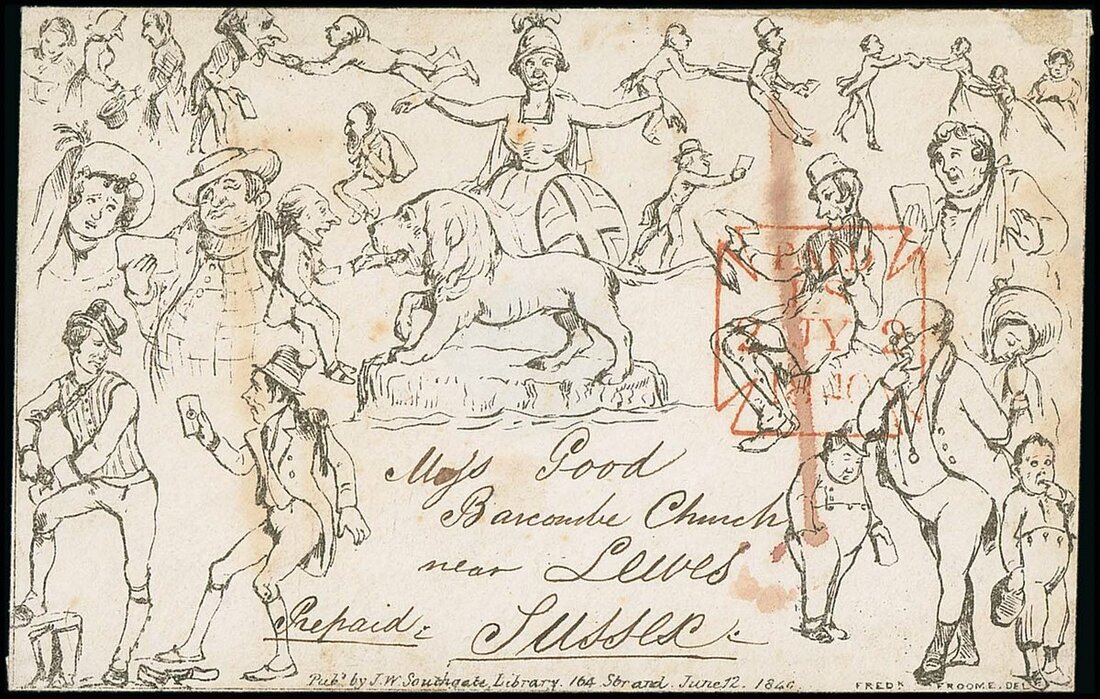 PAID
LS
2 JY 2
1840
Miss Good
Barcombe Church
near Lewes
Prepaid
Sussex
Pubd by J.W. Southgate, Library. 164 Strand. June 12. 1840.
FREDK FROOME. DEL